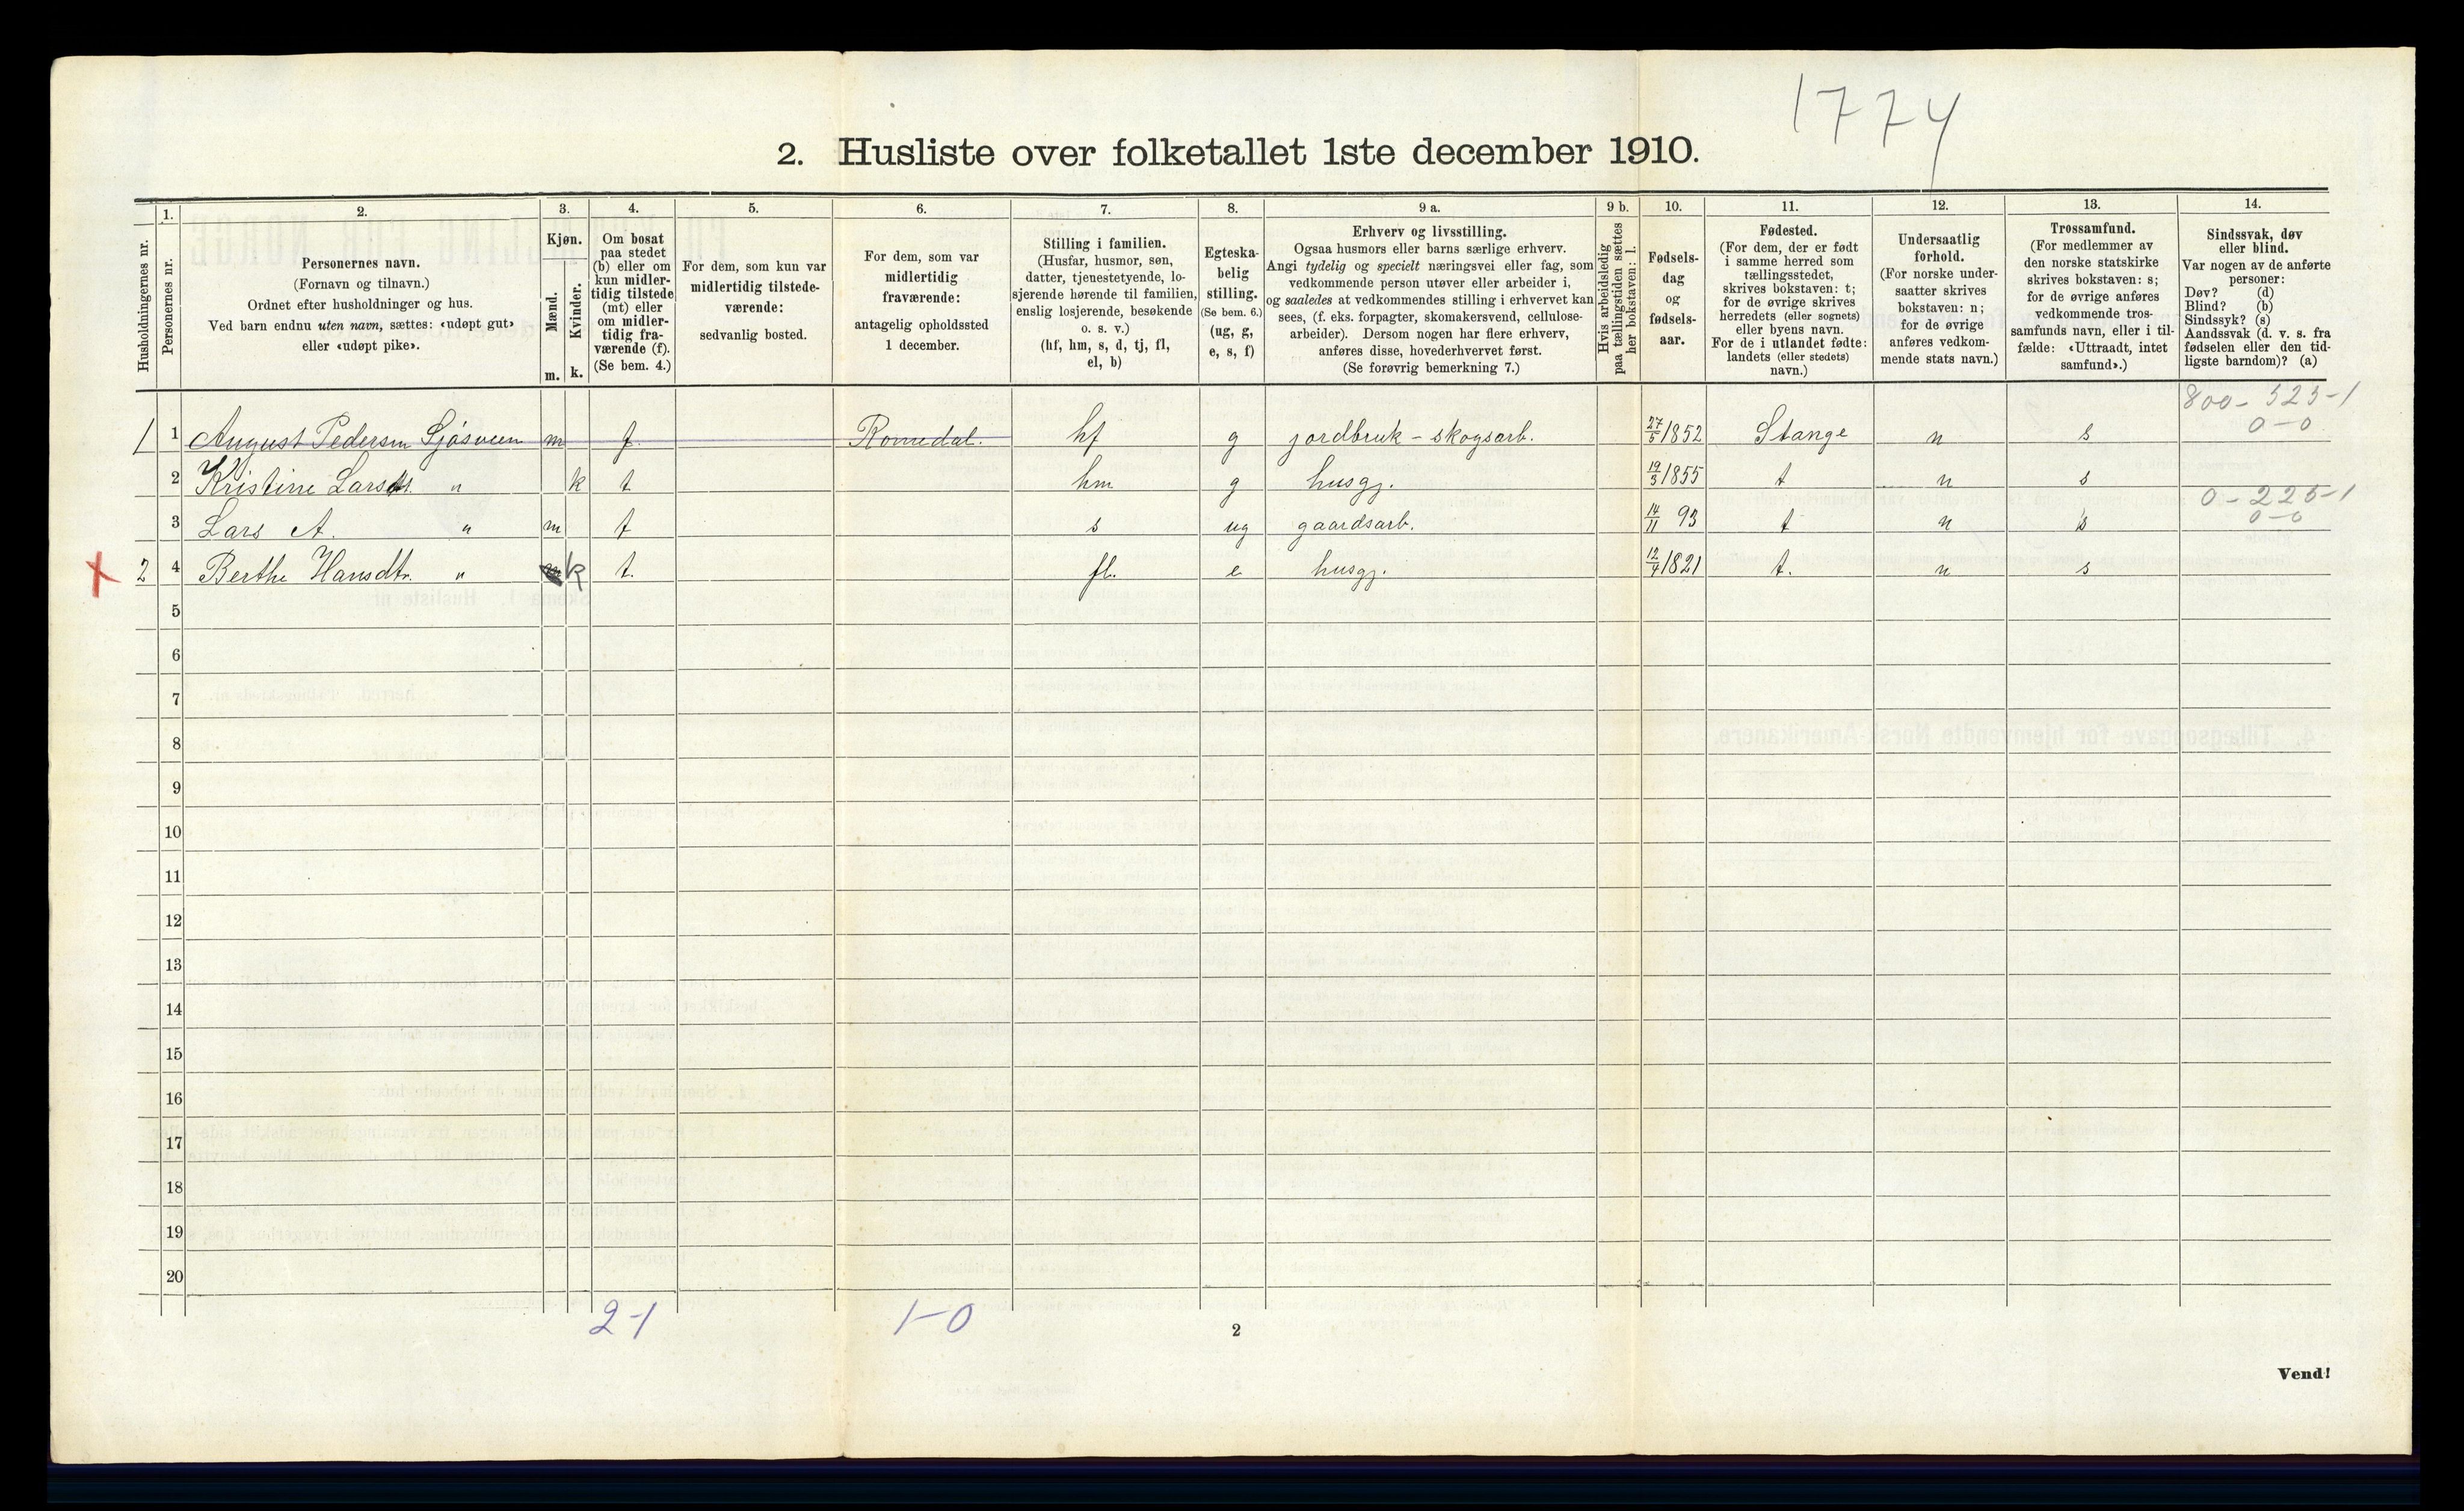 1774
2. Husliste over folketallet 1ste december 1910.
Husholdningernes nr.
1. Personernes nr.
2.
Personernes navn.
(Fornavn og tilnavn.)
Ordnet efter husholdninger og hus.
Ved barn endnu uten navn, sættes: «udøpt gut»
eller «udøpt pike».
3.
Kjøn.
Mænd. Kvinder.
m. k.
4.
Om bosat
paa stedet
(b) eller om
kun midler-
tidig tilstede
(mt) eller
om midler-
tidig fra-
værende (f).
(Se bem. 4.)
5.
For dem, som kun var
midlertidig tilstede-
værende:
sedvanlig bosted.
6.
For dem, som var
midlertidig
fraværende:
antagelig opholdssted
1 december.
7.
Stilling i familien.
(Husfar, husmor, søn,
datter, tjenestetyende, lo-
sjerende hørende til familien,
enslig losjerende, besøkende
o. s. v.)
(hf, hm, s, d, tj, fl,
el, b)
8.
Egteska-
belig
stilling.
(Se bem. 6.)
(ug, g,
e, s, f)
9 a.
Erhverv og livsstilling.
Ogsaa husmors eller barns særlige erhverv.
Angi tydelig og specielt næringsvei eller fag, som
vedkommende person utøver eller arbeider i,
og saaledes at vedkommendes stilling i erhvervet kan
sees, (f. eks. forpagter, skomakersvend, cellulose-
arbeider). Dersom nogen har flere erhverv,
anføres disse, hovederhvervet først.
(Se forøvrig bemerkning 7.)
9 b.
Hvis arbeidsledig
paa tællingstiden sættes
her bokstaven: l.
10.
Fødsels-
dag
og
fødsels-
aar.
11.
Fødested.
(For dem, der er født
i samme herred som
tællingsstedet,
skrives bokstaven: t;
for de øvrige skrives
herredets (eller sognets)
eller byens navn.
For de i utlandet fødte:
landets (eller stedets)
navn.)
12.
Undersaatlig
forhold.
(For norske under-
saatter skrives
bokstaven: n;
for de øvrige
anføres vedkom-
mende stats navn.)
13.
Trossamfund.
(For medlemmer av
den norske statskirke
skrives bokstaven: s;
for de øvrige anføres
vedkommende tros-
samfunds navn, eller i til-
fælde: «Uttraadt, intet
samfund».)
14.
Sindssvak, døv
eller blind.
Var nogen av de anførte
personer:
Døv? (d)
Blind? (b)
Sindssyk? (s)
Aandssvak (d. v. s. fra
fødselen eller den tid-
ligste barndom)? (a)
800 - 525 - 1
0 - 0
1 1 August Pedersen Sjøsveen m f. Romedal. hf g jordbruk - skogsarb. 27/5 1852 Stange n s
2 Kristine Larsdt. " k t hm g husgj. 19/3 1855 t n s
0 - 225 - 1
0 - 0
3 Lars A. " m t s ug gaardsarb. 14/11 93 t n s
X 2 4 Berthe Hansdtr. " k t. fl. e husgj. 12/4 1821 t. n s
5
6
7
8
9
10
11
12
13
14
15
16
17
18
19
20
2-1 1-0
2
Vend!